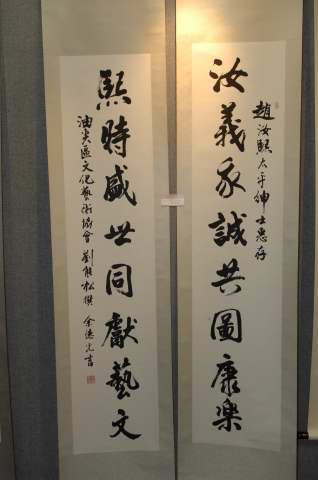 趙汝熙太平紳士惠存
汝義永誠共圖康樂
熙時盛世同獻藝文
油尖區文化藝術協會
劉能松撰